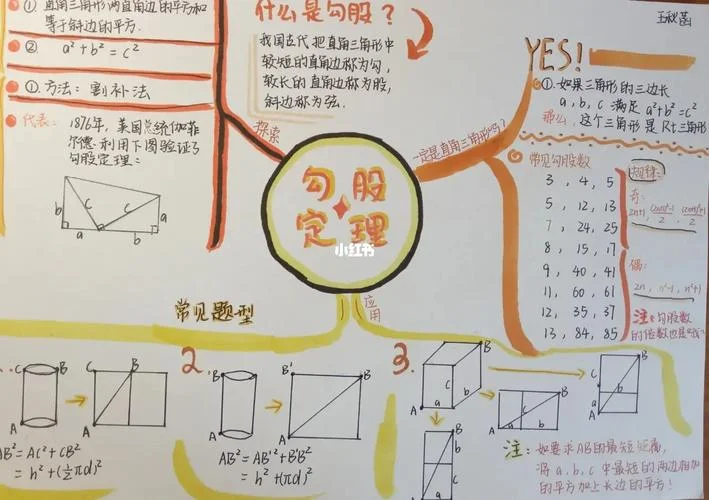 ① 直角三角形两直角边的平方和
等于斜边的平方.
② a²+b²=c²
① 方法: 割补法
代表: 1876年, 美国总统伽菲
尔德. 利用下图验证了
勾股定理:
b a c c b a
探索
什么是勾股?
我国古代把直角三角形中
较短的直角边称为勾,
较长的直角边称为股,
斜边称为弦.
王秋菡
YES!
①.如果三角形的三边长
a,b,c 满足 a²+b²=c²
那么, 这个三角形是 Rt三角形
一定是直角三角形吗?
常见勾股数
3, 4, 5
5, 12, 13
7, 24, 25
8, 15, 17
9, 40, 41
11, 60, 61
12, 35, 37
13, 84, 85
规律:
奇:
偶:
2n, n²-1, n²+1
注:勾股数
的倍数也是
勾股
定理
小红书
应用
常见题型
C B A C B A
AB²=AC²+CB²
=h²+(½πd)²
2
B' B A B' B A
AB²=AB'²+B'B²
=h²+(πd)²
3.
B c a b A
B c a b A
B c b a A
B b c a A
注: 如要求AB的最短距离,
将 a,b,c 中最短的两边相加
的平方加上长边的平方!